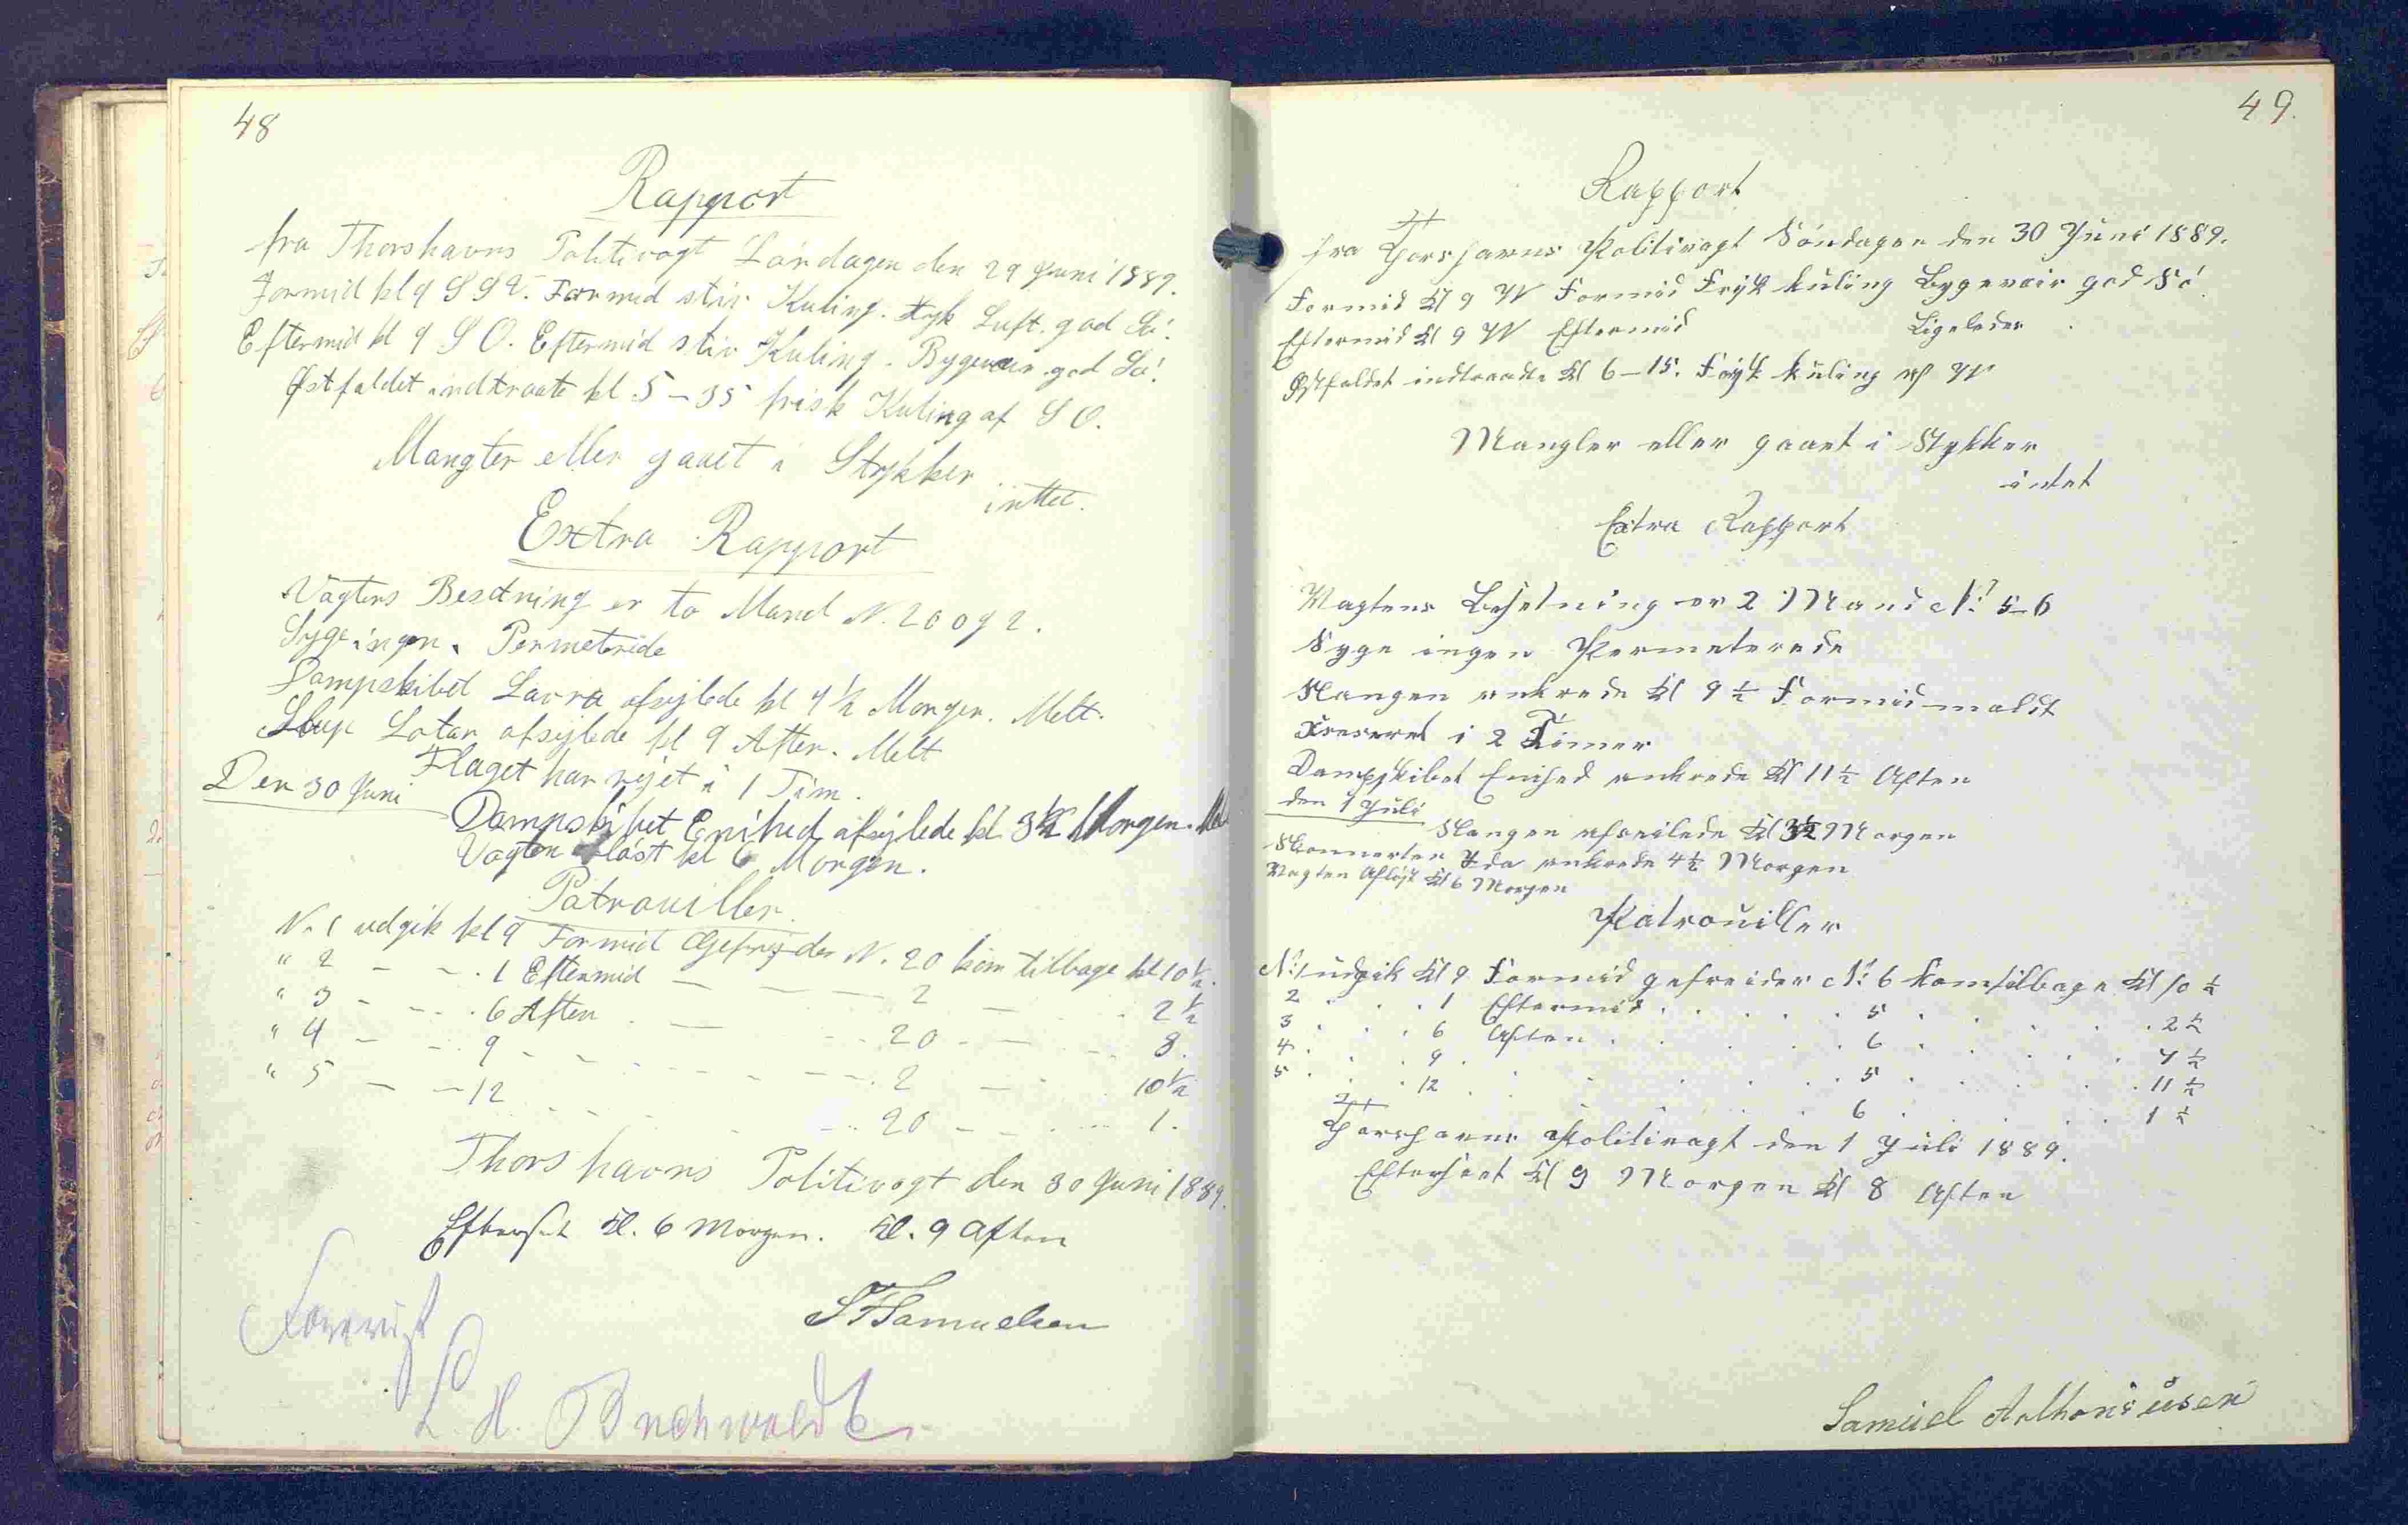 48
Rapport
fra Thorshavns Politivagt Lørdagen den 29 Juni 1889.
Formid kl 9 S S V. Formid stiv Kuling. tyk Luft. god Sø.
Eftermid kl 9 S O. Eftermid stiv Kuling. Bygevær. god Sø.
Østfaldet indtraate kl 5-35 frisk Kuling af S O.
Mangler eller gaaet i Stykker
inttet.
Extra Rapport
Vagtens Besætning er to Mand N. 20 og 2.
Syge ingen. Permeteride
Dampskibet Laura afsejlede kl 4½ Morgen. Melt.
Slup Lotar afsejlede kl 9 Aften. Melt
Flaget har vejet i 1 Tim.
Den 30 Juni
Dampskibet Enihed afsejlede kl 3½ Morgen.
Vagten afløst kl 6 Morgen.
Patrouiller.
N. 1 udgik kl 9 Formid Gefrejder N. 20 kom tilbage kl 10½.
" 2 - - . 1 Eftermid - - - 2 - . 2½
" 3 - - . 6 Aften . - - 20 - - 8.
" 4 - - . 9 - - - 2 - . 10½
" 5 - - 12 - - 20 - - 1.
Thorshavns Politivagt den 30 Juni 1889.
Efterset Kl. 6 Morgen. Kl. 9 Aften
S F Samuelsen
Forevist
L. H. Buchwaldt
49.
Rapport
fra Thorshavns Politivagt Söndagen den 30 Juni 1889.
Formid Kl 9 W Formid Frisk kuling Bygevair god Sö
Eftermid Kl 9 W Eftermid Ligeledes
Østfaldet indtraadte Kl 6-15. Frisk kuling af W
Mangler eller gaaet i Stykker
intet
Extra Rapport
Vagtens Besetning er 2 Mand No 5-6
Syge ingen Permeterede
Slangen ankrede Kl 9½ Formid meldt
i 2 Timer
Dampskibet Enihed ankrede Kl 11½ Aften
den 1 Juli
Slangen afseilede Kl 3½ Morgen
Skonnerten Ida ankrede 4½ Morgen
Vagten Aflöst Kl 6 Morgen
Patrouiller
No 1 udgik Kl 9 Formid gefreider No 6 kom tilbage Kl 10½
2 . . . 1 Eftermid . . . . 5 . . . . 2½
3 . . . 6 Aften . . . . 6 . . . . 7½
4 . . . 9 . . . . 5 . . . . 11½
5 . . . 12 . . . . 6 . . . . 1½
Thorshavns Politivagt den 1 Juli 1889.
Efterseet Kl 9 Morgen Kl 8 Aften
Samuel Anthoniusen